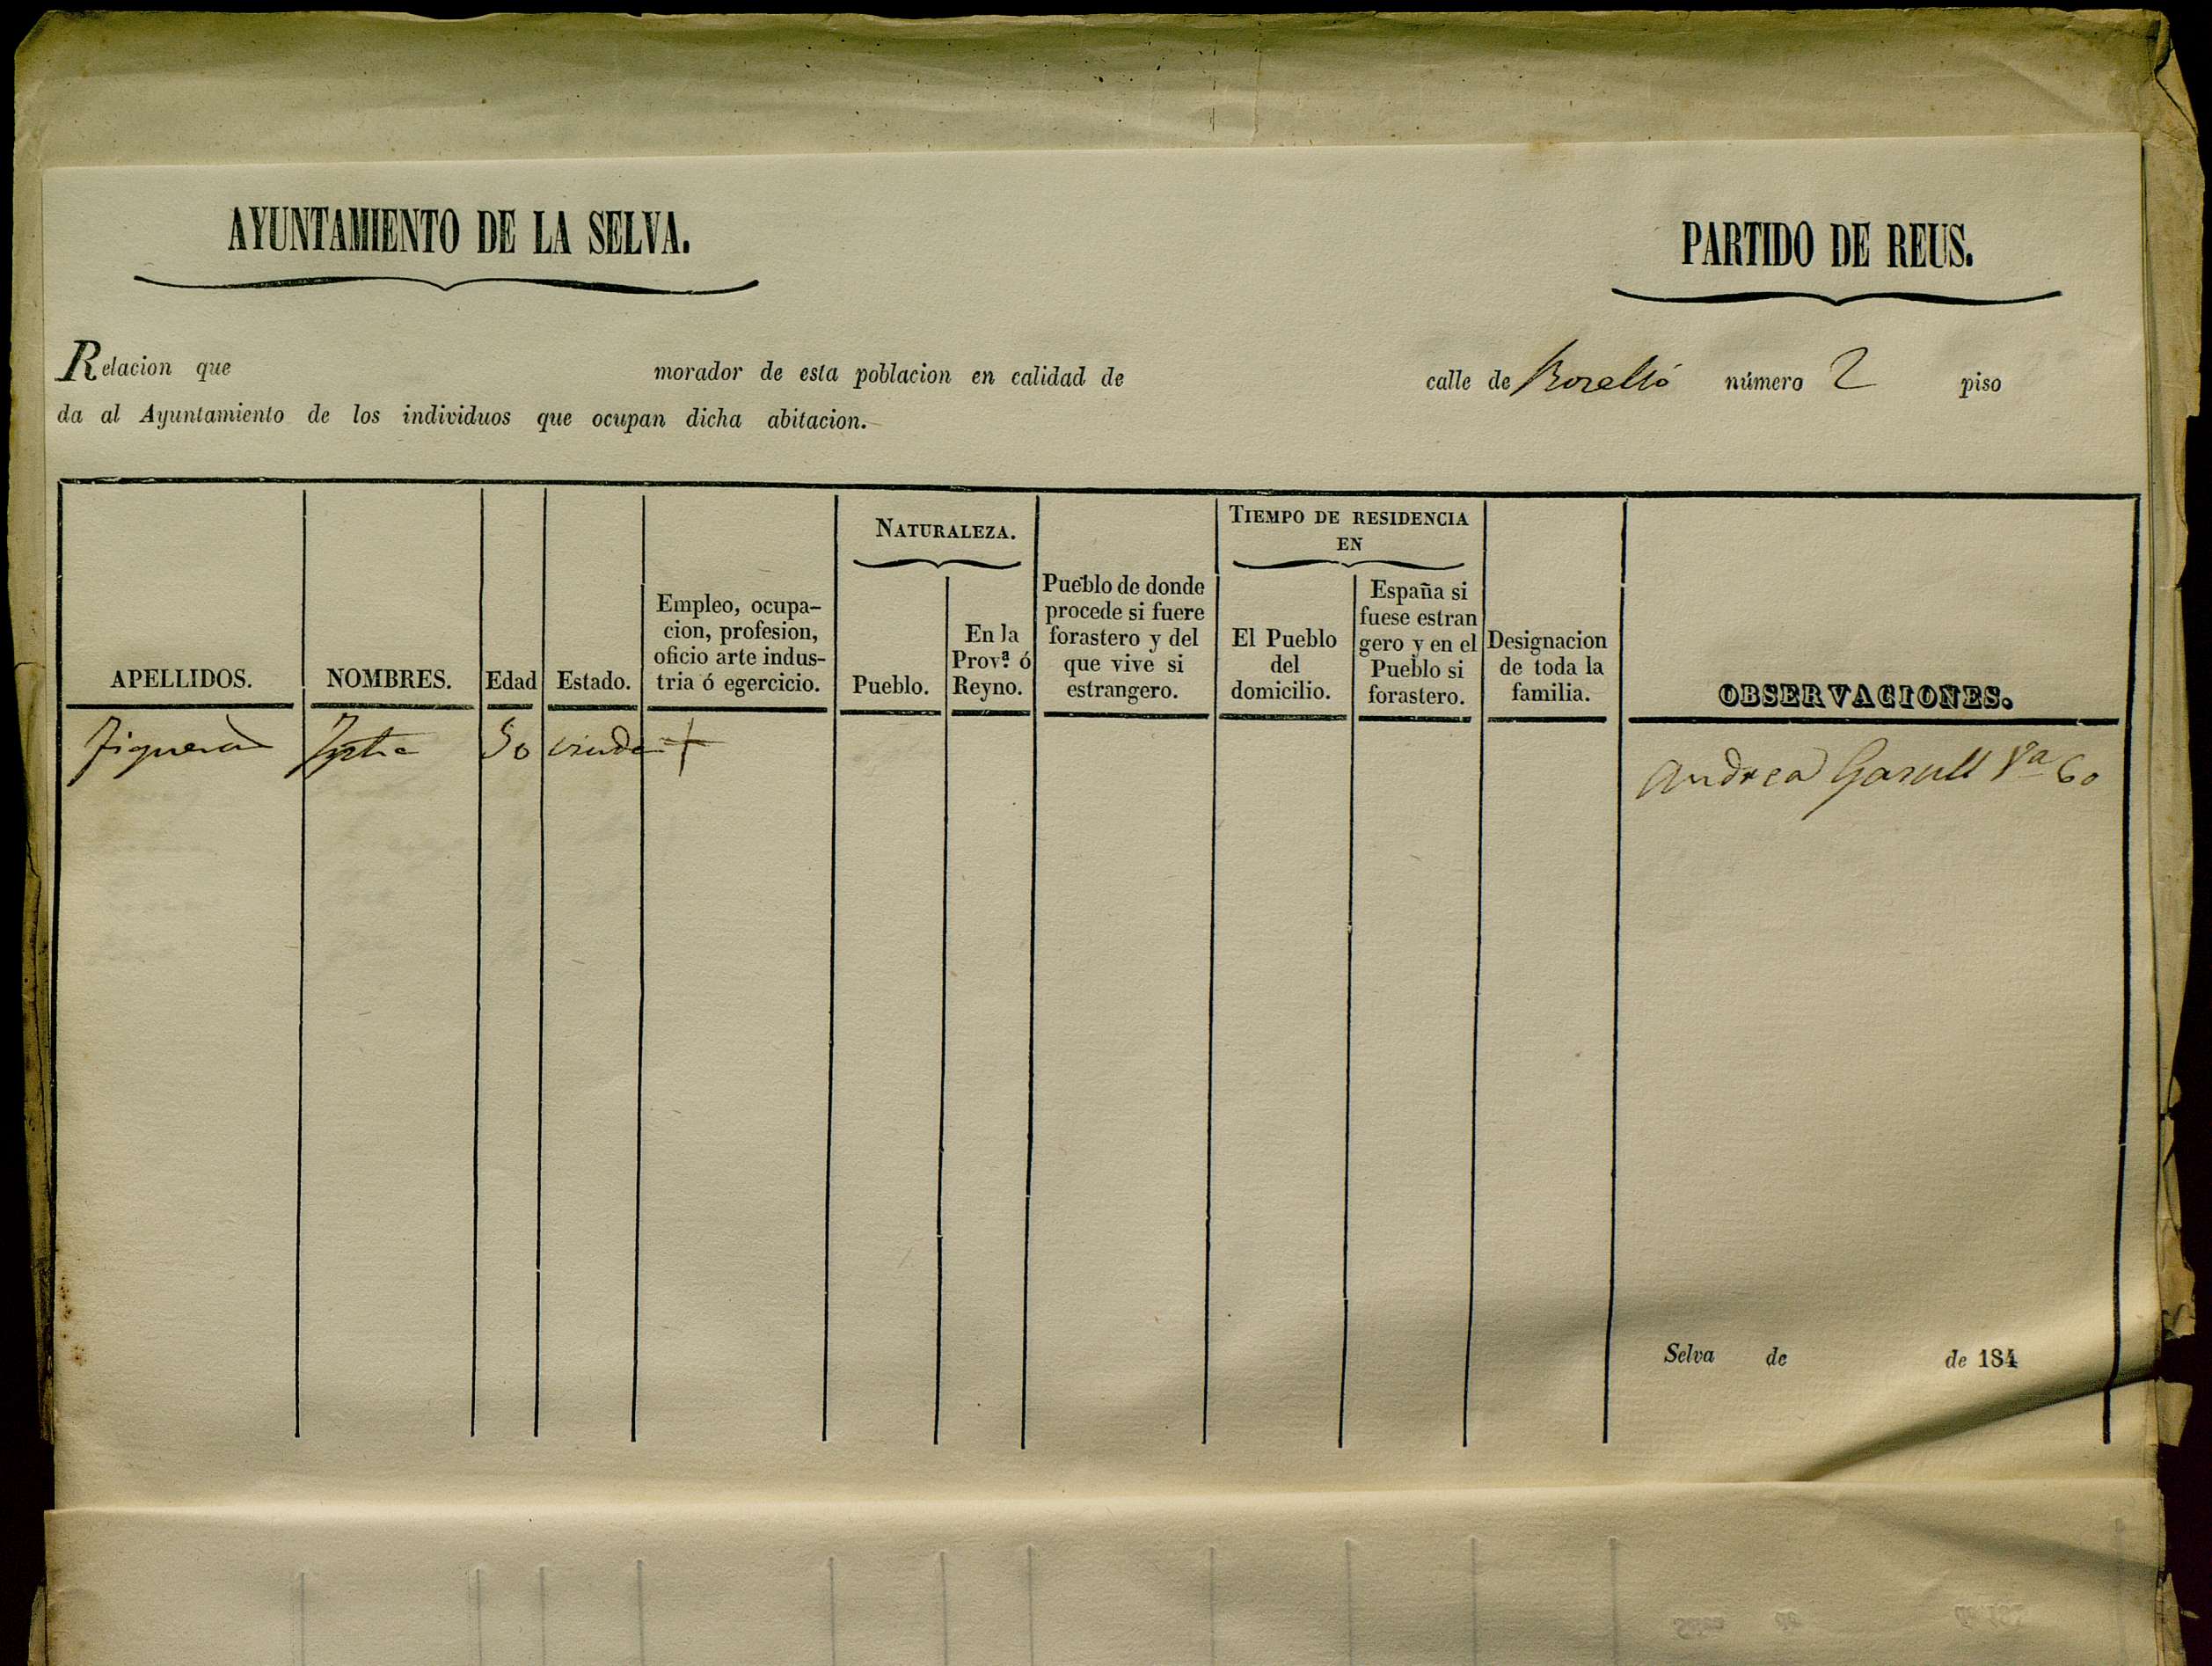 AYUNTAMIENTO DE LA SELVA.
PARTIDO DE REUS.
Relacion que morador de esta poblacion en calidad de calle de Borelló número 2 piso
da al Ayuntamiento de los individuos que ocupan dicha abitacion.
NATURALEZA.
TIEMPO DE RESIDENCIA
EN
APELLIDOS.
NOMBRES.
Edad
Estado.
Empleo, ocupa-
cion, profesion,
oficio arte indus-
tria ó egercicio.
Pueblo.
En la
Prov.ª ó
Reyno.
Pueblo de donde
procede si fuere
forastero y del
que vive si
estrangero.
El Pueblo
del
domicilio.
España si
fuese estran
gero y en el
Pueblo si
forastero.
Designacion
de toda la
familia.
OBSERVACIONES.
Figuerà 50 viuda +
Andrea Gasull Vª 60
Selva de de 184